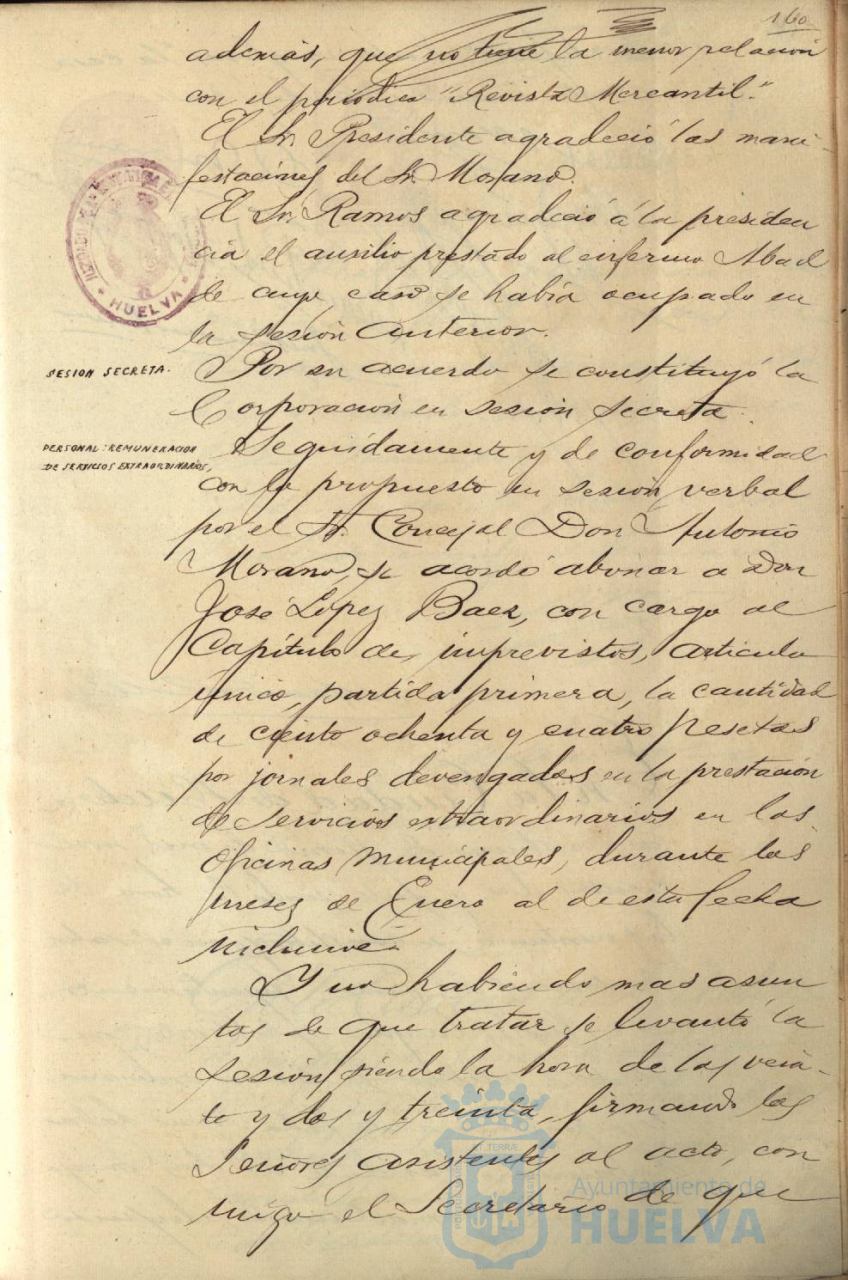 160
además, que no tiene la menor relacion
con el periodico "Revista Mercantil".
El Sr. Presidente agradeció las mani-
festaciones del Sr. Morano.
El Sr. Ramos agradeció á la presiden
cia el auxilio prestado al enfermo Abad
de cuyo caso se había ocupado en
la sesión anterior.
SESION SECRETA.
Por su acuerdo se constituyó la
Corporación en sesión secreta.
PERSONAL: REMUNERACION
DE SERVICIOS EXTRAORDINARIOS,
Seguidamente y de conformidad
con lo propuesto en sesión verbal
por el Sr. Concejal Don Antonio
Morano, se acordó abonar a Don
José López Baez, con cargo al
Capítulo de imprevistos, articulo
único, partida primera, la cantidad
de ciento ochenta y cuatro pesetas
por jornales devengados en la prestación
de servicios extraordinarios en las
oficinas municipales, durante los
meses de Enero al de esta fecha
inclusive.
Y no habiendo mas asun
tos de que tratar se levantó la
sesión siendo la hora de las vein-
te y dos y treinta, firmando los
Señores asistentes al acto, con
migo el Secretario de que
HUELVA
Ayuntamiento de
HUELVA